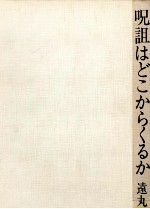 呪詛はどこからくるか 遠丸